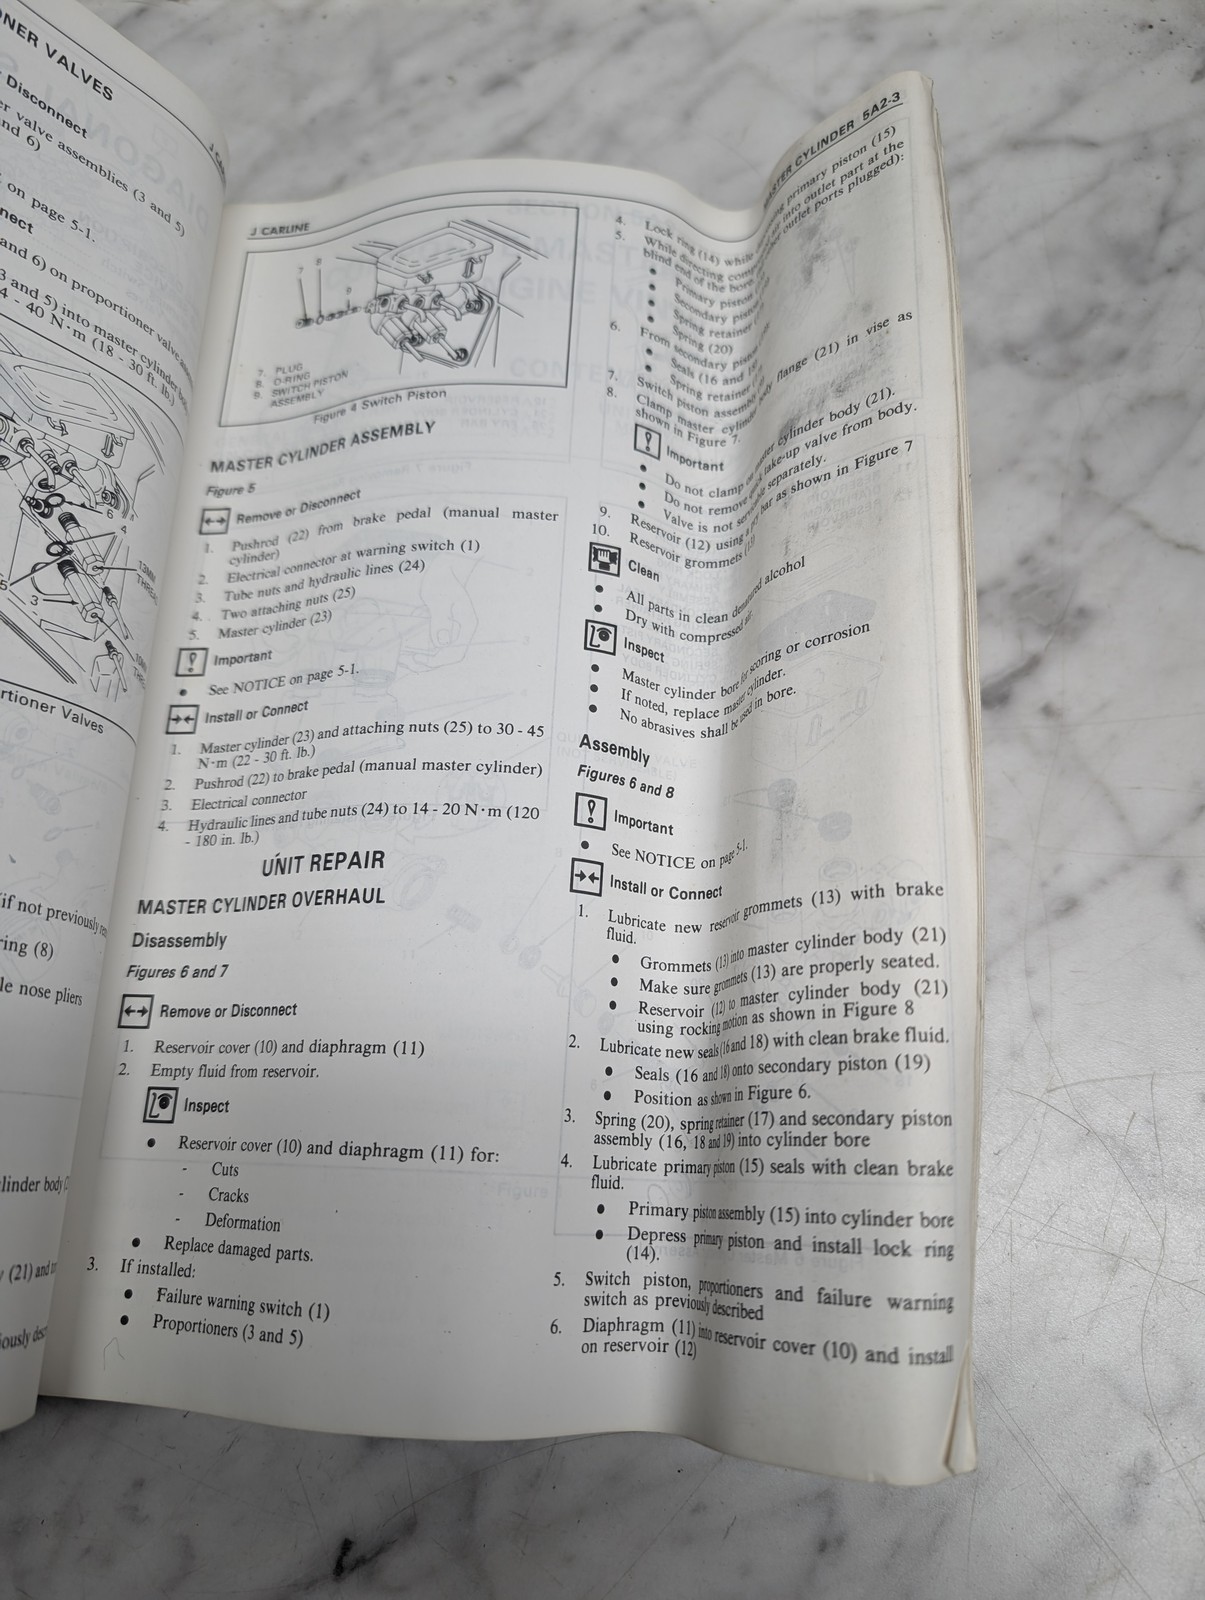 ONER VALVES
Disconnect
valve assemblies (3 and 5)
nd 6)
on page 5-1.
nect
and 6) on proportioner valve
3 and 5) into master cylinder
4 - 40 N·m (18 - 30 ft. lb.)
6
4
13MM
5
3
rtioner Valves
if not previously
ring (8)
le nose pliers
linder body
(21) and
J CARLINE
MASTER CYLINDER 5A2-3
7 8
9
7. PLUG
8. O-RING
9. SWITCH PISTON
ASSEMBLY
Figure 4 Switch Piston
MASTER CYLINDER ASSEMBLY
Figure 5
Remove or Disconnect
1. Pushrod (22) from brake pedal (manual master
cylinder)
2. Electrical connector at warning switch (1)
3. Tube nuts and hydraulic lines (24)
4. Two attaching nuts (25)
5. Master cylinder (23)
Important
• See NOTICE on page 5-1.
Install or Connect
1. Master cylinder (23) and attaching nuts (25) to 30 - 45
N·m (22 - 30 ft. lb.)
2. Pushrod (22) to brake pedal (manual master cylinder)
3. Electrical connector
4. Hydraulic lines and tube nuts (24) to 14 - 20 N·m (120
- 180 in. lb.)
UNIT REPAIR
MASTER CYLINDER OVERHAUL
Disassembly
Figures 6 and 7
Remove or Disconnect
1. Reservoir cover (10) and diaphragm (11)
2. Empty fluid from reservoir.
Inspect
• Reservoir cover (10) and diaphragm (11) for:
- Cuts
- Cracks
- Deformation
• Replace damaged parts.
3. If installed:
• Failure warning switch (1)
• Proportioners (3 and 5)
4. Lock ring (14) while primary piston (15)
5. While directing air into outlet part at the
blind end of the bore outlet ports plugged):
• Primary piston
• Secondary piston
• Spring retainer
• Spring (20)
6. From secondary piston
• Seals (16 and 18)
• Spring retainer
7. Switch piston assembly
8. Clamp master cylinder body flange (21) in vise as
shown in Figure 7.
Important
• Do not clamp on master cylinder body (21).
• Do not remove take-up valve from body.
• Valve is not separately.
9. Reservoir (12) using a pry bar as shown in Figure 7
10. Reservoir grommets (13)
Clean
• All parts in clean denatured alcohol
• Dry with compressed air.
Inspect
• Master cylinder bore for scoring or corrosion
• If noted, replace master cylinder.
• No abrasives shall be used in bore.
Assembly
Figures 6 and 8
Important
• See NOTICE on page 5-1.
Install or Connect
1. Lubricate new reservoir grommets (13) with brake
fluid.
• Grommets (13) into master cylinder body (21)
• Make sure grommets (13) are properly seated.
• Reservoir (12) to master cylinder body (21)
using rocking motion as shown in Figure 8
2. Lubricate new seals (16 and 18) with clean brake fluid.
• Seals (16 and 18) onto secondary piston (19)
• Position as shown in Figure 6.
3. Spring (20), spring retainer (17) and secondary piston
assembly (16, 18 and 19) into cylinder bore
4. Lubricate primary piston (15) seals with clean brake
fluid.
• Primary piston assembly (15) into cylinder bore
• Depress primary piston and install lock ring
(14).
5. Switch piston, proportioners and failure warning
switch as previously described
6. Diaphragm (11) into reservoir cover (10) and install
on reservoir (12)